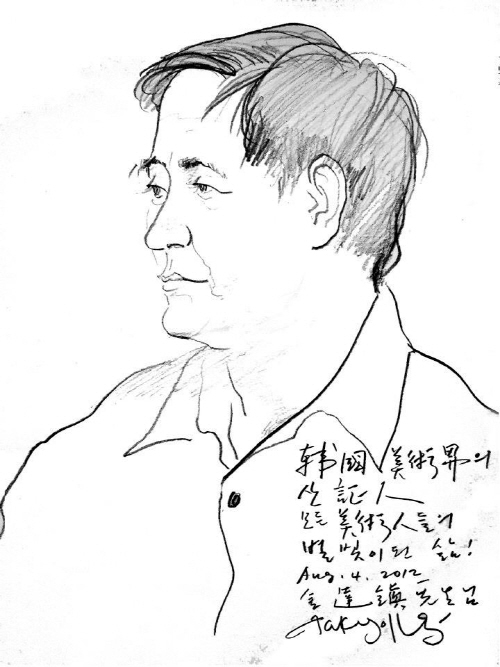 韩國 美術界의
산 証人
모든 美術人들의
별빛이 된 삶!
Aug. 4. 2012
金達鎭 先生님